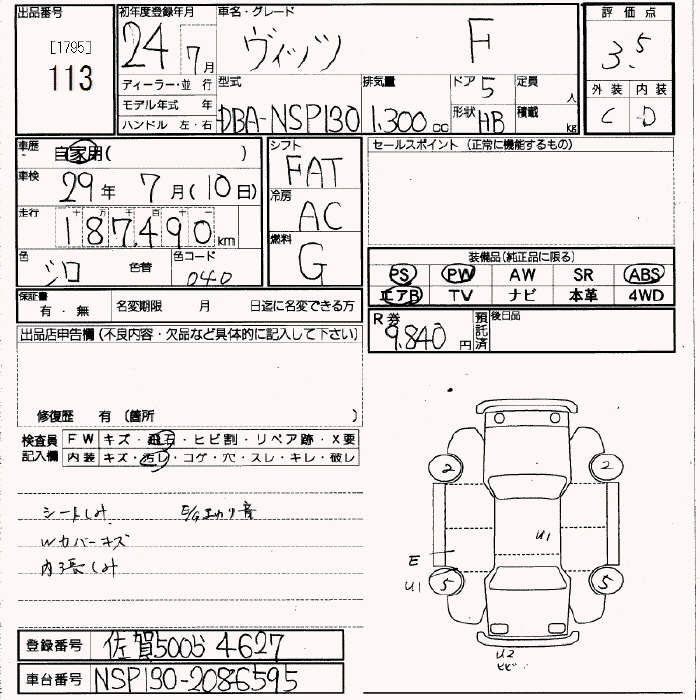 出品番号
[1795]
113
初年度登録年月
24 7月
車名・グレード
ヴィッツ F
評価点
3.5
外装 内装
C D
ディーラー・並行
モデル年式 年
ハンドル 左・右
型式
DBA-NSP130
排気量
1,300cc
ドア
5
形状
HB
定員
人
積載
kg
車歴
自家用( )
車検
29年 7月(10日)
走行
十万千百十一
187,490km
色
シロ
色替
色コード
040
シフト
FAT
冷房
AC
燃料
G
セールスポイント (正常に機能するもの)
装備品(純正品に限る)
PS PW AW SR ABS
エアB TV ナビ 本革 4WD
保証書
有・無
名変期限 月 日迄に名変できる方
R券
9,840円
預託済
後日品
出品店申告欄(不良内容・欠品など具体的に記入して下さい)
修復歴 有(箇所 )
検査員記入欄
FW キズ・飛石・ヒビ割・リペア跡・X要
内装 キズ・汚レ・コゲ・穴・スレ・キレ・破レ
シートしみ
Wカバーキズ
内張しみ
2 2
U1
E
U1
5 5
U2
ヒビ
登録番号
佐賀500ら4627
車台番号
NSP130-2086595